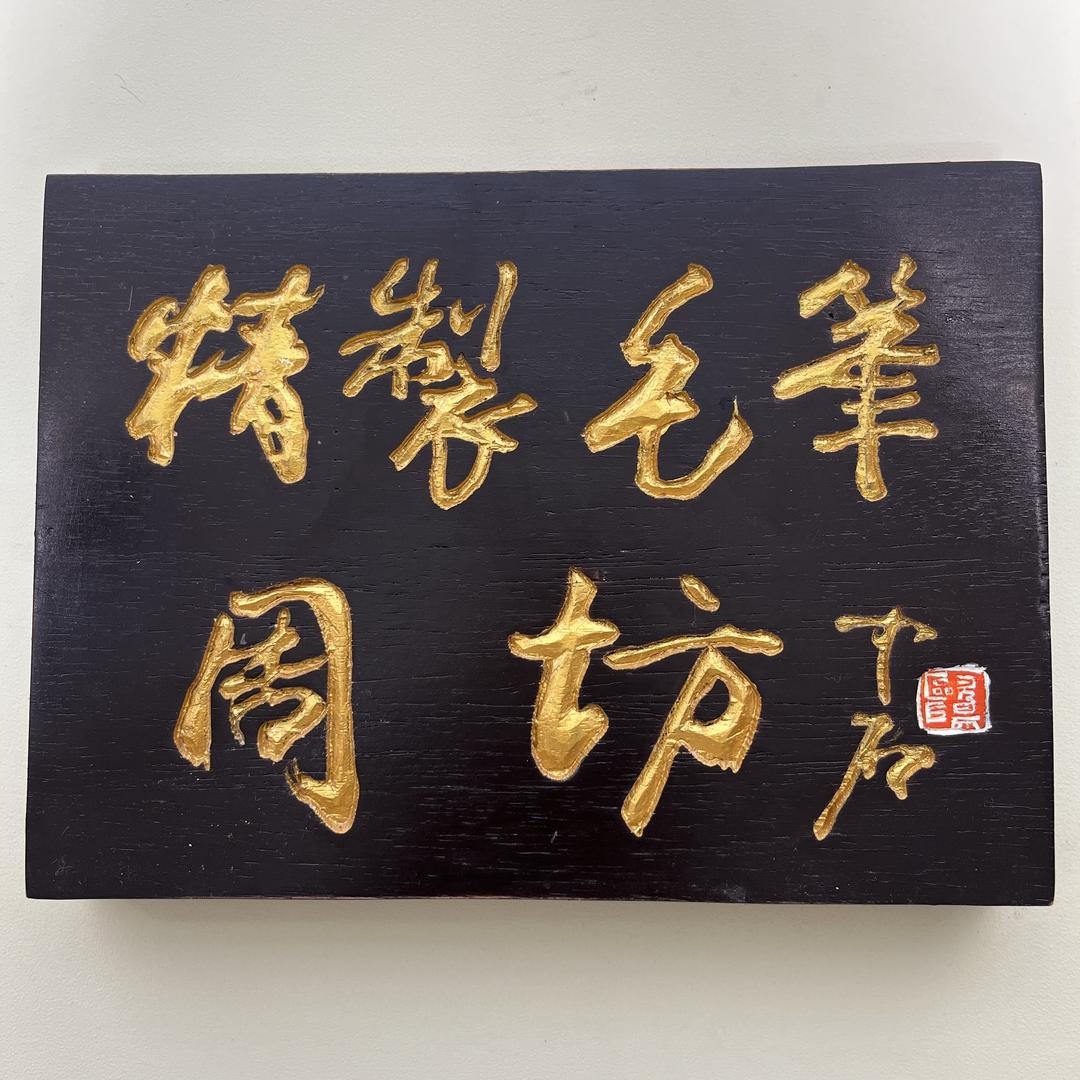 精製毛筆
周坊
十石